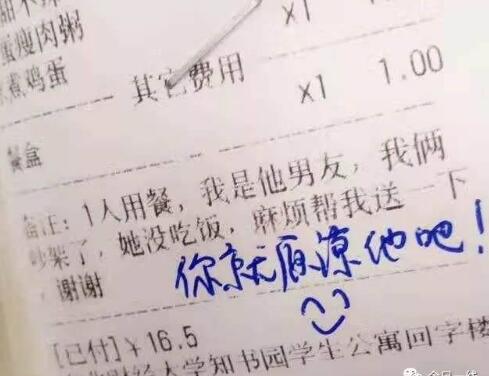 蛋瘦肉粥
煮鸡蛋
x1
其它费用
x1 1.00
餐盒
备注：1人用餐，我是他男友，我俩
吵架了，她没吃饭，麻烦帮我送一下
，谢谢
你就原谅他吧！
[已付]￥16.5
学知书园学生公寓回字楼